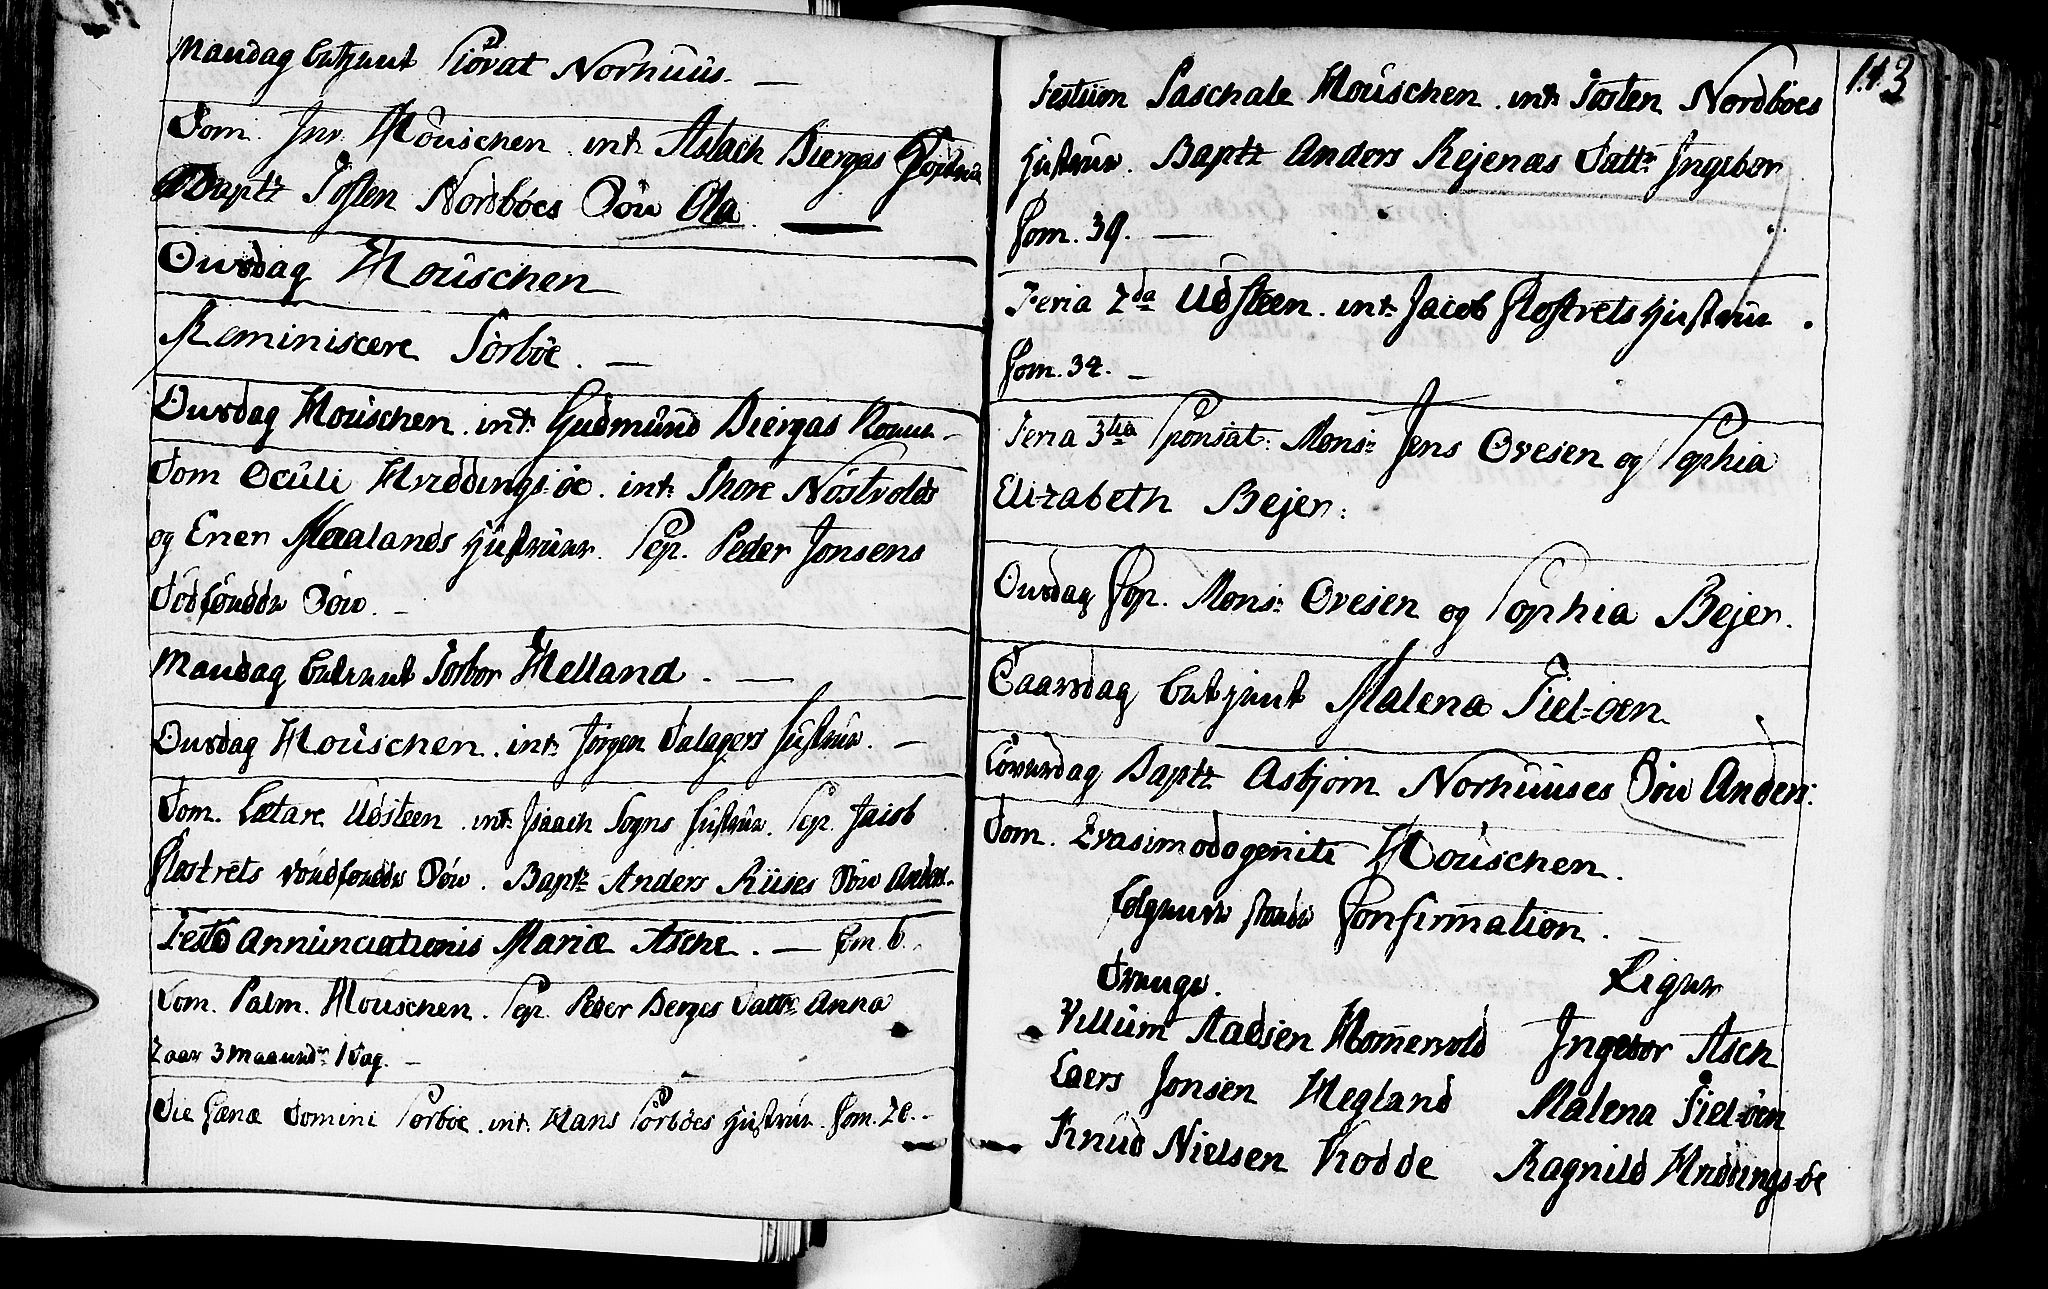 Mandag betjent Siövat Norhuus. —
Dom. Inv. Mouschen. int: Aslach Biergas Hustrue
Bapt: Tosten Nordböes Sön Ola. —
Onsdag Mouschen
Reminiscere Sörböe. —
Onsdag Mouschen. int: Gudmund Biergas Kone.
Dom Oculi Hreddings-öe. int: Thore Nöstvolds
og Ener Maalands Hustruer. Sep. Peder Jonsens
Dödfödde Sön. —
Mandag betient Torbor Helland. —
Onsdag Mouschen. int: Jörgen Dalagers Hustrue. —
Dom. Lætare Udsteen. int: Isaach Sogns Hustrue. Sep. Jacob
Klostrets dödfödde Sön. Bapt: Anders Ruses Sön Anders.
Festo Annunciationis Mariæ Aske. — Com. 6.
Dom. Palm. Mouschen. Sep. Peder Berges Datter Anna
2 aar 3 maaneder 1 Dag. —
Die Cænæ Domini Sörböe. int: Hans Sörböes Hustrue. Com. 20. —
113
Festum Paschale Mouschen. int: Tosten Nordböes
Hustrue. Bapt: Anders Rejenæs Datter Ingebor
Com. 39. —
Feria 2da Udsteen. int: Jacob Klostrets Hustrue.
Com. 34. —
Feria 3tia Sponsat: Mons: Jens Ovesen og Sophia
Elizabeth Bejer:
Onsdag Cop. Mons: Ovesen og Sophia Bejer.
Taarsdag betjent Malena Fiel-öen.
Löverdag Bapt: Asbjörn Norhuuses Sön Anders:
Dom. Qvasimodogeniti Mouschen.
fölgende stode Confirmation. —
Drenge.	Piger
Villum Aadsen Hommervold	Ingebor Asch
Laers Jonsen Hegland	Malena Fiel-öen
Knud Nielsen Vodde	Ragnild Hreddings-öe